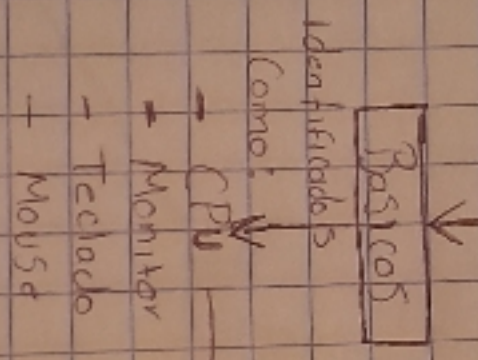 Basicos
identificados
Como:
- CPU
- Monitor
- Teclado
- Mouse